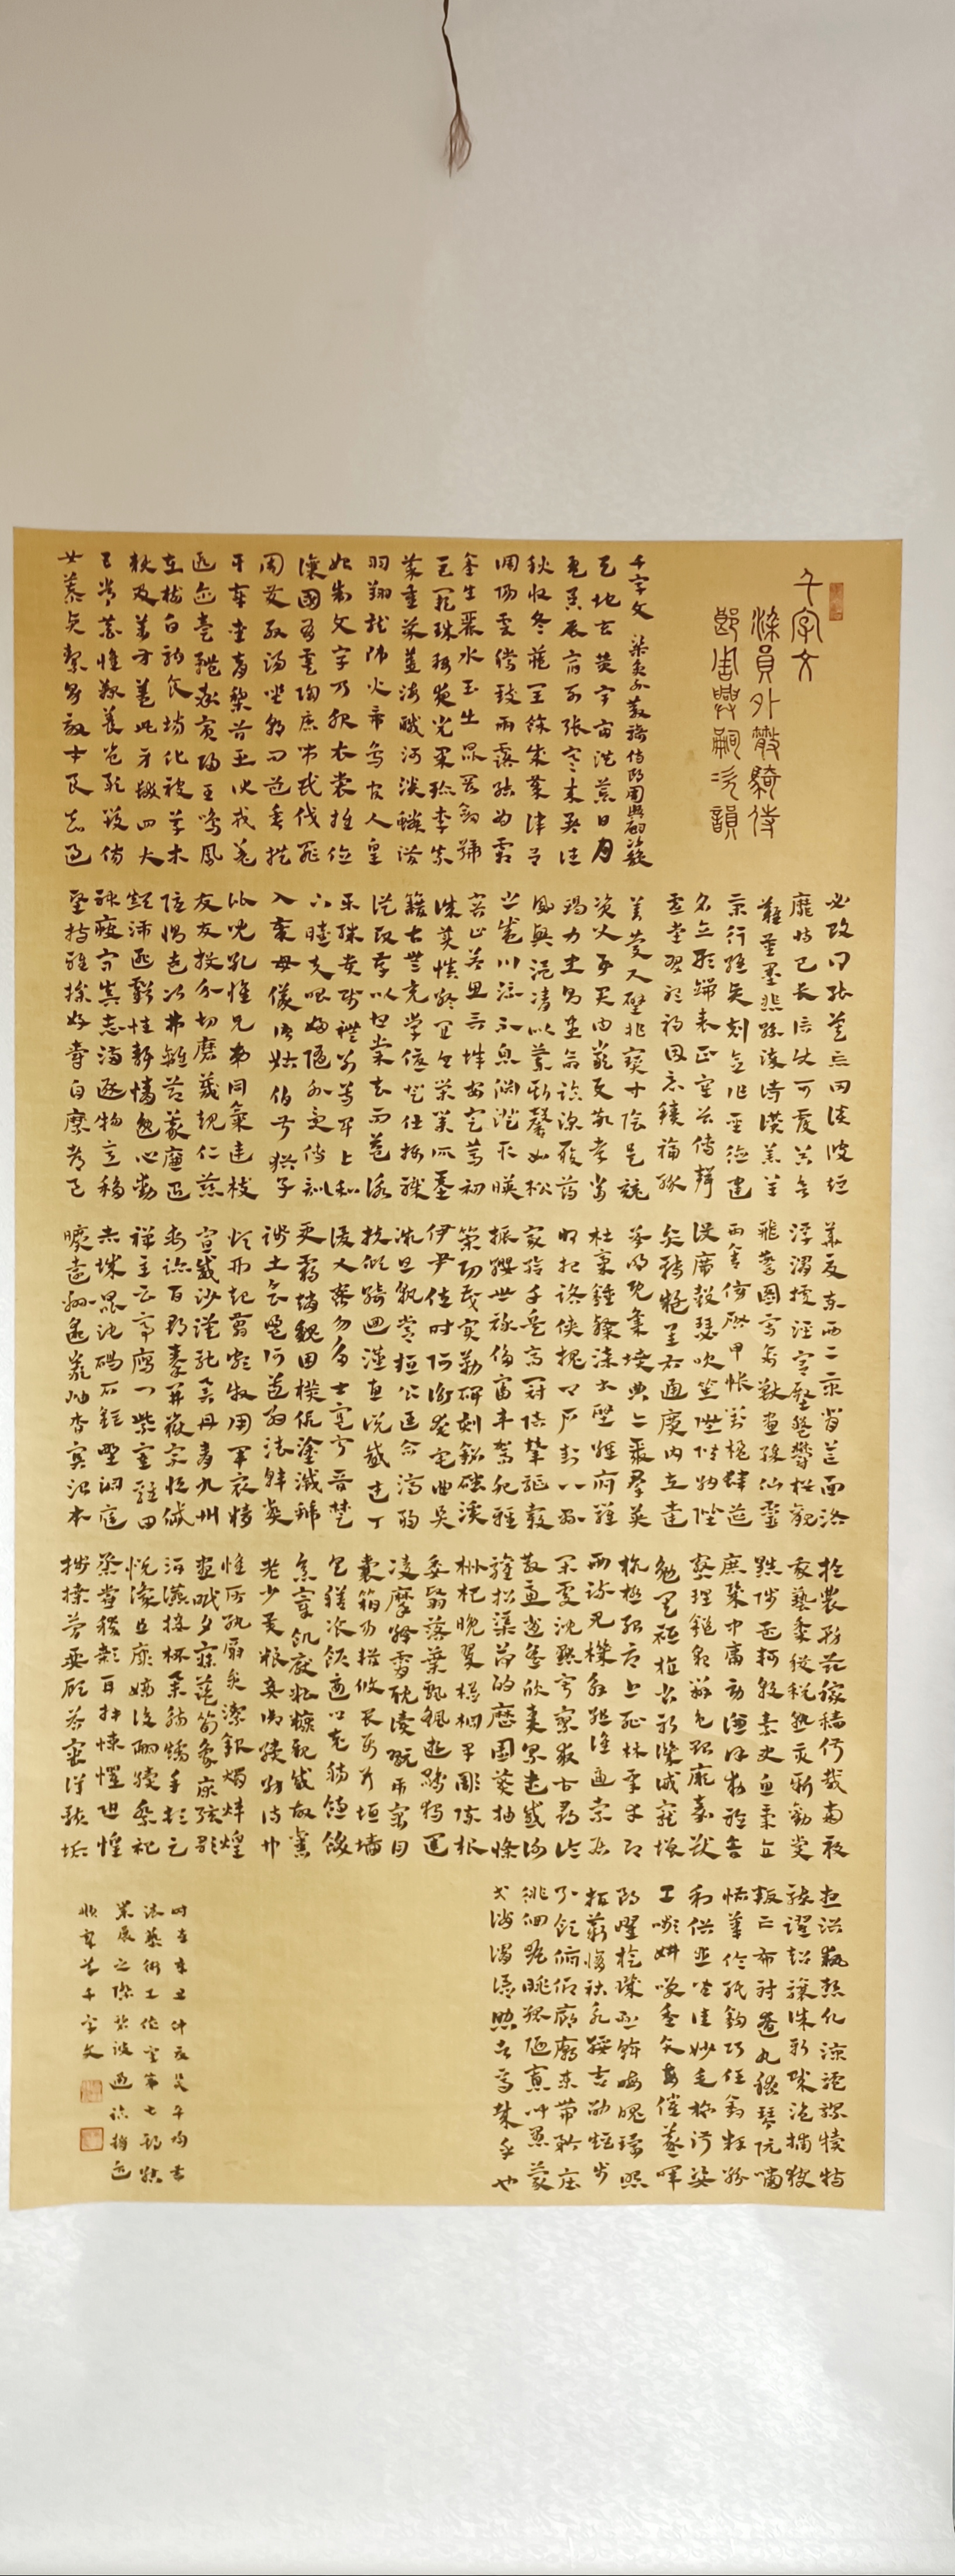 千字文
梁員外散騎侍
郎周興嗣次韻
千字文 梁員外散騎侍郎周興嗣次韻
天地玄黃宇宙洪荒日月
盈昃辰宿列張寒來暑往
秋收冬藏閏餘成歲律呂
調陽雲騰致雨露結為霜
金生麗水玉出崑崗劍號
巨闕珠稱夜光果珍李柰
菜重芥薑海鹹河淡鱗潛
羽翔龍師火帝鳥官人皇
始制文字乃服衣裳推位
讓國有虞陶唐弔民伐罪
周發殷湯坐朝問道垂拱
平章愛育黎首臣伏戎羌
遐邇壹體率賓歸王鳴鳳
在樹白駒食場化被草木
賴及萬方蓋此身髮四大
五常恭惟鞠養豈敢毀傷
女慕貞絜男效才良知過
必改得能莫忘罔談彼短
靡恃己長信使可覆器欲
難量墨悲絲染詩讚羔羊
景行維賢剋念作聖德建
名立形端表正空谷傳聲
虛堂習聽禍因惡積福緣
善慶尺璧非寶寸陰是競
資父事君曰嚴與敬孝當
竭力忠則盡命臨深履薄
夙興溫凊似蘭斯馨如松
之盛川流不息淵澄取暎
容止若思言辭安定篤初
誠美慎終宜令榮業所基
籍甚無竟學優登仕攝職
從政存以甘棠去而益詠
樂殊貴賤禮別尊卑上和
下睦夫唱婦隨外受傅訓
入奉母儀諸姑伯叔猶子
比兒孔懷兄弟同氣連枝
交友投分切磨箴規仁慈
隱惻造次弗離節義廉退
顛沛匪虧性靜情逸心動
神疲守真志滿逐物意移
堅持雅操好爵自縻都邑
華夏東西二京背芒面洛
浮渭據涇宮殿盤鬱樓觀
飛驚圖寫禽獸畫彩仙靈
丙舍傍啟甲帳對楹肆筵
設席鼓瑟吹笙陞階納陛
弁轉疑星右通廣內左達
承明既集墳典亦聚群英
杜稾鍾隸漆書壁經府羅
將相路俠槐卿戶封八縣
家給千兵高冠陪輦驅轂
振纓世祿侈富車駕肥輕
策功茂實勒碑刻銘磻溪
伊尹佐時阿衡奄宅曲阜
微旦孰營桓公匡合濟弱
扶傾綺迴漢惠說感武丁
俊乂密勿多士寔寧晉楚
更霸趙魏困橫假途滅虢
踐土會盟何遵約法韓弊
煩刑起翦頗牧用軍最精
宣威沙漠馳譽丹青九州
禹跡百郡秦并嶽宗恒岱
禪主云亭雁門紫塞雞田
赤城昆池碣石鉅野洞庭
曠遠緜邈巖岫杳冥治本
於農務茲稼穡俶載南畝
我藝黍稷稅熟貢新勸賞
黜陟孟軻敦素史魚秉直
庶幾中庸勞謙謹敕聆音
察理鑑貌辨色貽厥嘉猷
勉其祗植省躬譏誡寵增
抗極殆辱近恥林皋幸即
兩疏見機解組誰逼索居
閑處沈默寂寥求古尋論
散慮逍遙欣奏累遣慼謝
歡招渠荷的歷園莽抽條
枇杷晚翠梧桐早凋陳根
委翳落葉飄颻遊鵾獨運
凌摩絳霄耽讀翫市寓目
囊箱易輶攸畏屬耳垣牆
具膳飡飯適口充腸飽飫
烹宰飢厭糟糠親戚故舊
老少異糧妾御績紡侍巾
帷房紈扇圓潔銀燭煒煌
晝眠夕寐藍筍象床絃歌
酒讌接杯舉觴矯手頓足
悅豫且康嫡後嗣續祭祀
蒸嘗稽顙再拜悚懼恐惶
牋牒簡要顧答審詳骸垢
想浴執熱願涼驢騾犢特
駭躍超驤誅斬賊盜捕獲
叛亡布射遼丸嵇琴阮嘯
恬筆倫紙鈞巧任釣釋紛
利俗並皆佳妙毛施淑姿
工嚬妍笑年矢每催羲暉
朗曜璇璣懸斡晦魄環照
指薪修祜永綏吉劭矩步
引領俯仰廊廟束帶矜莊
徘徊瞻眺孤陋寡聞愚蒙
等誚謂語助者焉哉乎也
時在辛丑仲夏
法藝術工作室第七期
業展之際於
千字文